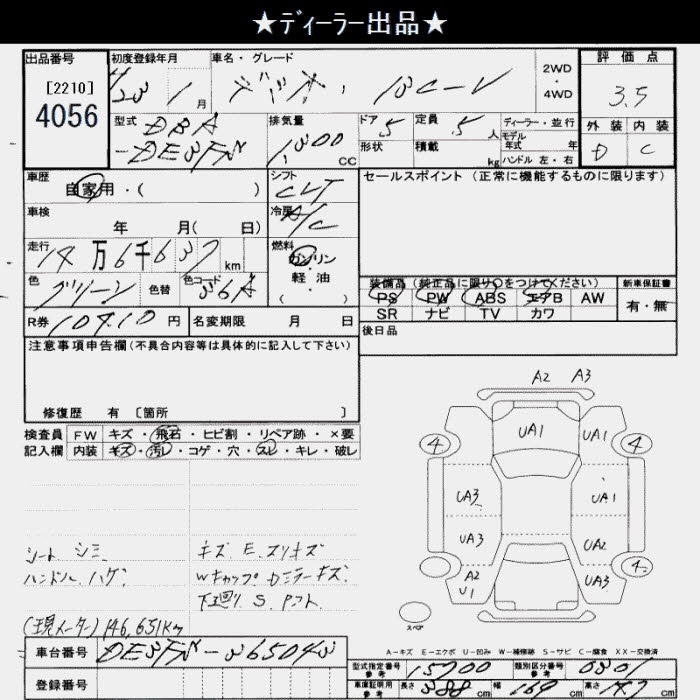 ★ディーラー出品★
出品番号 初度登録年月 車名・グレード 評価点
[2210] H23 1月 デミオ 13C-V 2WD・4WD 3.5
4056
型式 排気量 ドア 定員 ディーラー・並行 外装 内装
DBA 5 5人 モデル D C
-DE3FS 1,300CC 形状 積載 年式 年
kg ハンドル 左・右
車歴 シフト セールスポイント (正常に機能するものに限ります)
自家用・( ) CVT
車検 冷房
年 月( 日) A/C
走行 燃料
14万6千637km ガソリン
色 色替 色コード 軽・油
グリーン 36A ・( ) 装備品 (純正品に限り○をつけてください) 新車保証書
PS PW ABS エアB AW 有・無
R券 10410円 名変期限 月 日 SR ナビ TV カワ
後日品
注意事項申告欄(不具合内容等は具体的に記入して下さい)
修復歴 有 [箇所 ]
検査員 FW キズ・飛石・ヒビ割・リペア跡・×要
記入欄 内装 キズ・汚レ・コゲ・穴・スレ・キレ・破レ
A2 A3
UA1 UA1
4 4
UA3 UA1
UA3 UA2
A2 UA3 4
U1
スペア
シート シミ キズ E スリキズ
ハンドル ハゲ Wキャップ Dミラーキズ
下廻り S
(現メーター)146,651km
A-キズ E-エクボ U-凹み W-補修跡 S-サビ C-腐食 XX-交換済
車台番号 DE3FS-365043
登録番号
型式指定番号 参考 15700 類別区分番号 参考 0301
車庫証明用 参考 長さ 388cm 幅 169cm 高さ 147cm